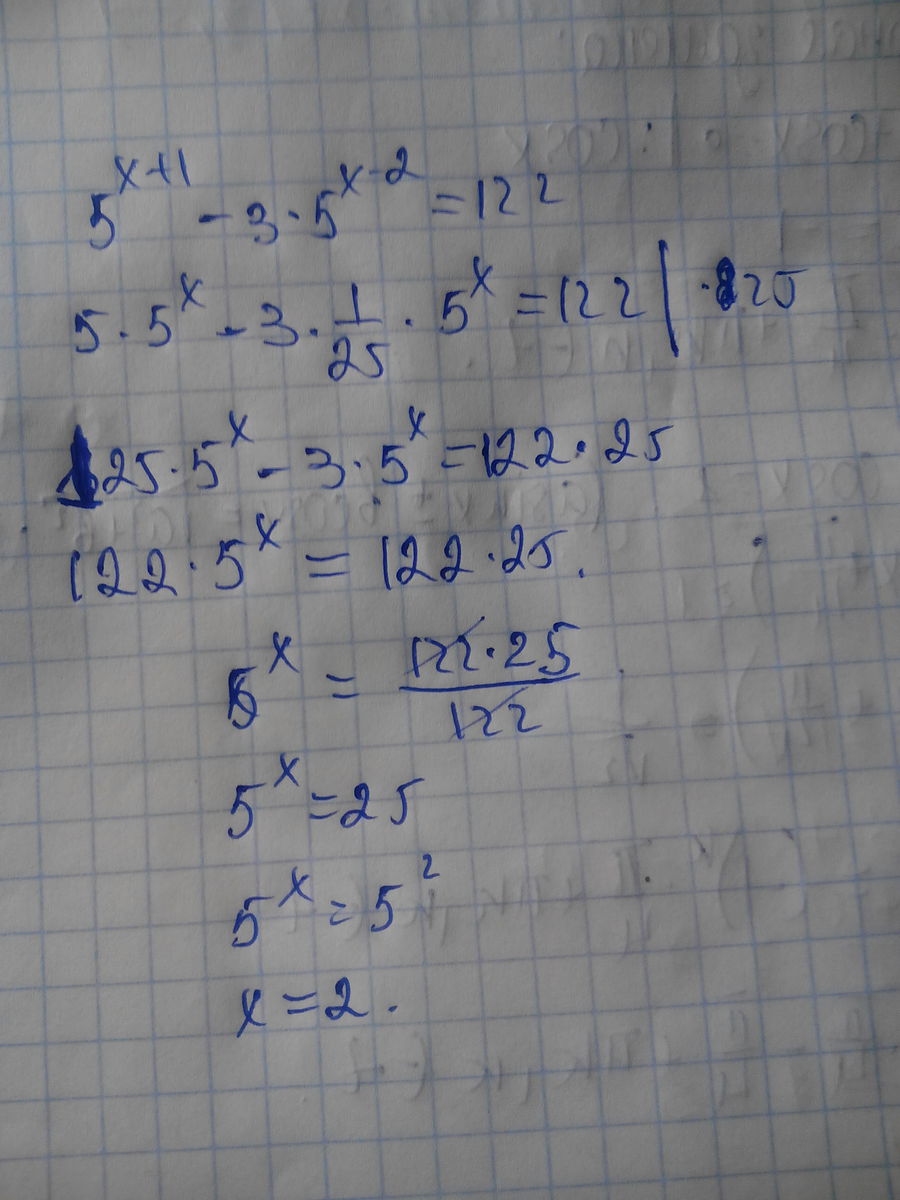 5^{x+1} - 3·5^{x-2} = 122
5·5^x - 3·\frac{1}{25}·5^x = 122 | ·25
125·5^x - 3·5^x = 122·25
122·5^x = 122·25.
5^x = \frac{122·25}{122}
5^x = 25
5^x = 5^2
x = 2.